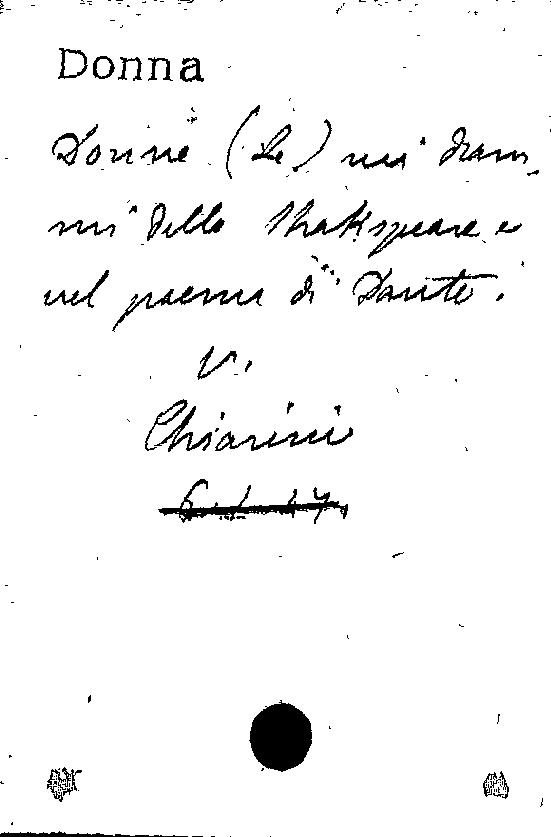 Donna
Donne (Le) nei dram-
mi dello Shakspeare e
nel poema di Dante.
V.
Chiarini